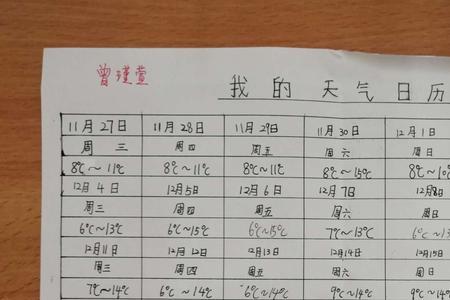 曾瑾萱
我的天气日历
11月27日 11月28日 11月29日 11月30日 12月1日
周三 周四 周五 周六 周日
8℃～11℃ 8℃～11℃ 8℃～11℃ 8℃～15℃ 8℃～10℃
12月4日 12月5日 12月6日 12月7日 12月8日
周三 周四 周五 周六 周日
6℃～13℃ 6℃～15℃ 6℃～15℃ 7℃～13℃ 6℃～13
12月11日 12月12日 12月13日 12月14日 12月15日
周三 周四 周五 周六 周日
7℃～14℃ 6℃～14℃ 6℃～14℃ 9℃～14℃ 9℃～14